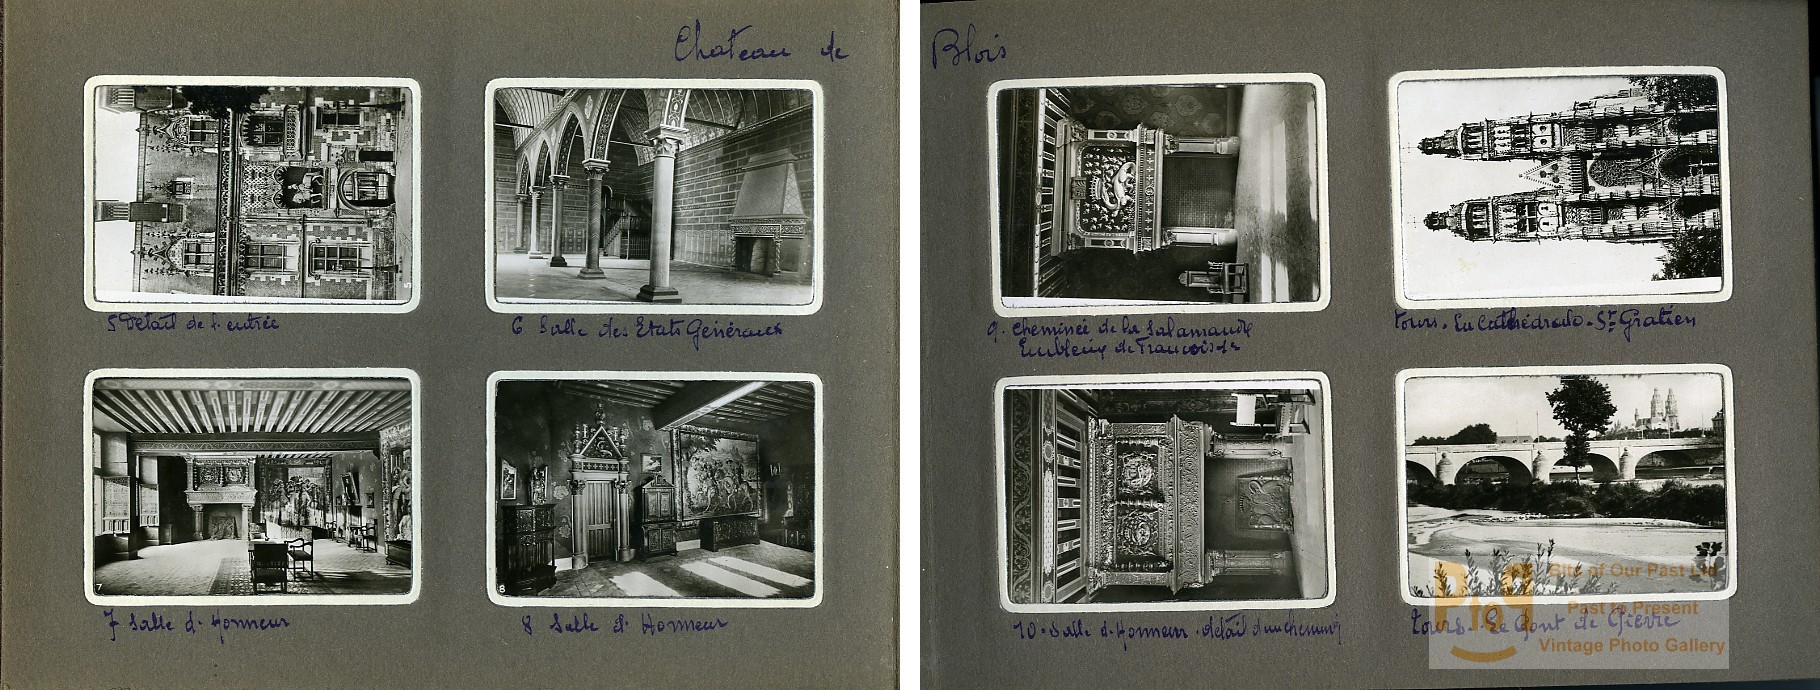 Chateau de Blois
5 Détail de l'entrée
6 Salle des Etats Généraux
7 Salle d'Honneur
8 Salle d'Honneur
9. Cheminée de la Salamandre
Emblème de François 1er
Tours. La Cathédrale. St Gratien
10. Salle d'Honneur. détail d'une cheminée
Tours. Le Pont de
5
7
8
Site of Our Past Ltd
Past to Present
Vintage Photo Gallery